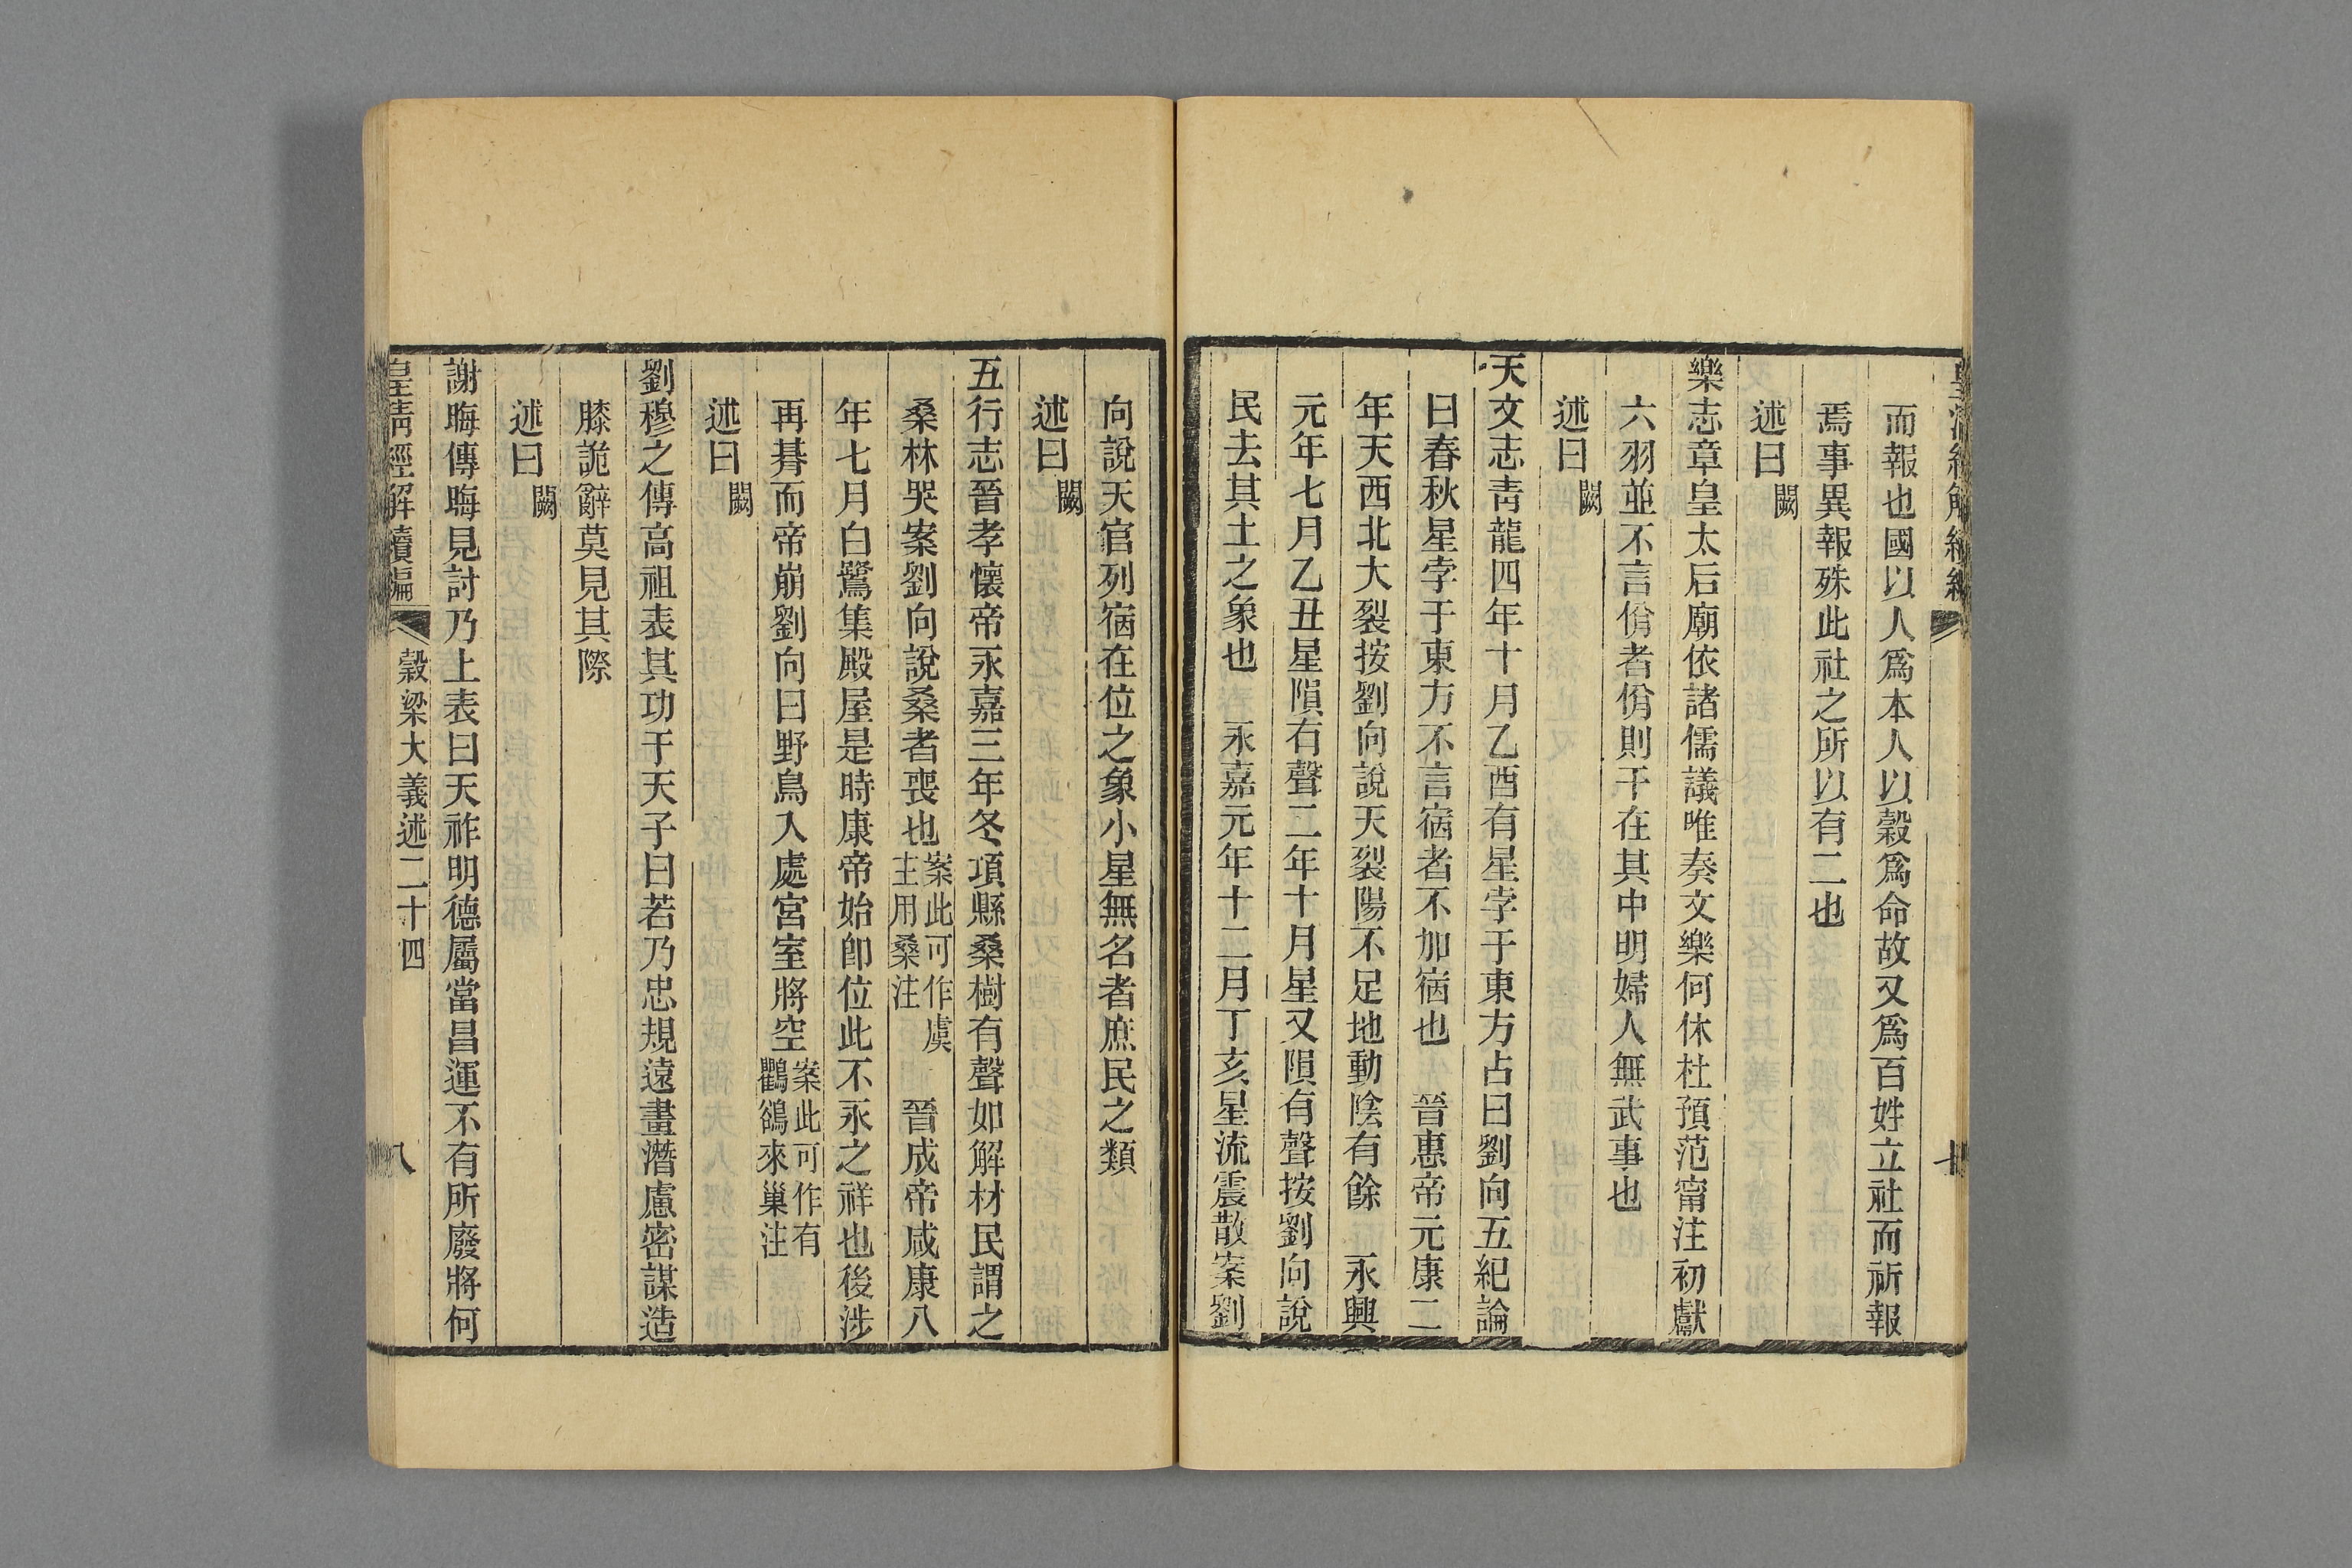 而報也國以人爲本人以穀爲命故又爲百姓立社而祈報
焉事異報殊此社之所以有二也
述曰闕
樂志章皇太后廟依諸儒議唯奏文樂何休杜預范甯注初獻
六羽並不言佾者佾則干在其中明婦人無武事也
述曰闕
天文志靑龍四年十月乙酉有星孛于東方占曰劉向五紀論
曰春秋星孛于東方不言宿者不加宿也　晉惠帝元康二
年天西北大裂按劉向說天裂陽不足地動陰有餘　永興
元年七月乙丑星隕有聲二年十月星又隕有聲按劉向說
民去其土之象也　永嘉元年十二月丁亥星流震散案劉
向說天官列宿在位之象小星無名者庶民之類
述曰闕
五行志晉孝懷帝永嘉三年冬項縣桑樹有聲如解材民謂之
桑林哭案劉向說桑者喪也案此可作虞主用桑注　晉成帝咸康八
年七月白鷺集殿屋是時康帝始卽位此不永之祥也後涉
再朞而帝崩劉向曰野鳥入處宮室將空案此可作有鸜鵒來巢注
述曰闕
劉穆之傳高祖表其功于天子曰若乃忠規遠畫潛慮密謀造
膝詭辭莫見其際
述曰闕
謝晦傳晦見討乃上表曰天祚明德屬當昌運不有所廢將何
皇淸經解續編　穀梁大義述二十四　八